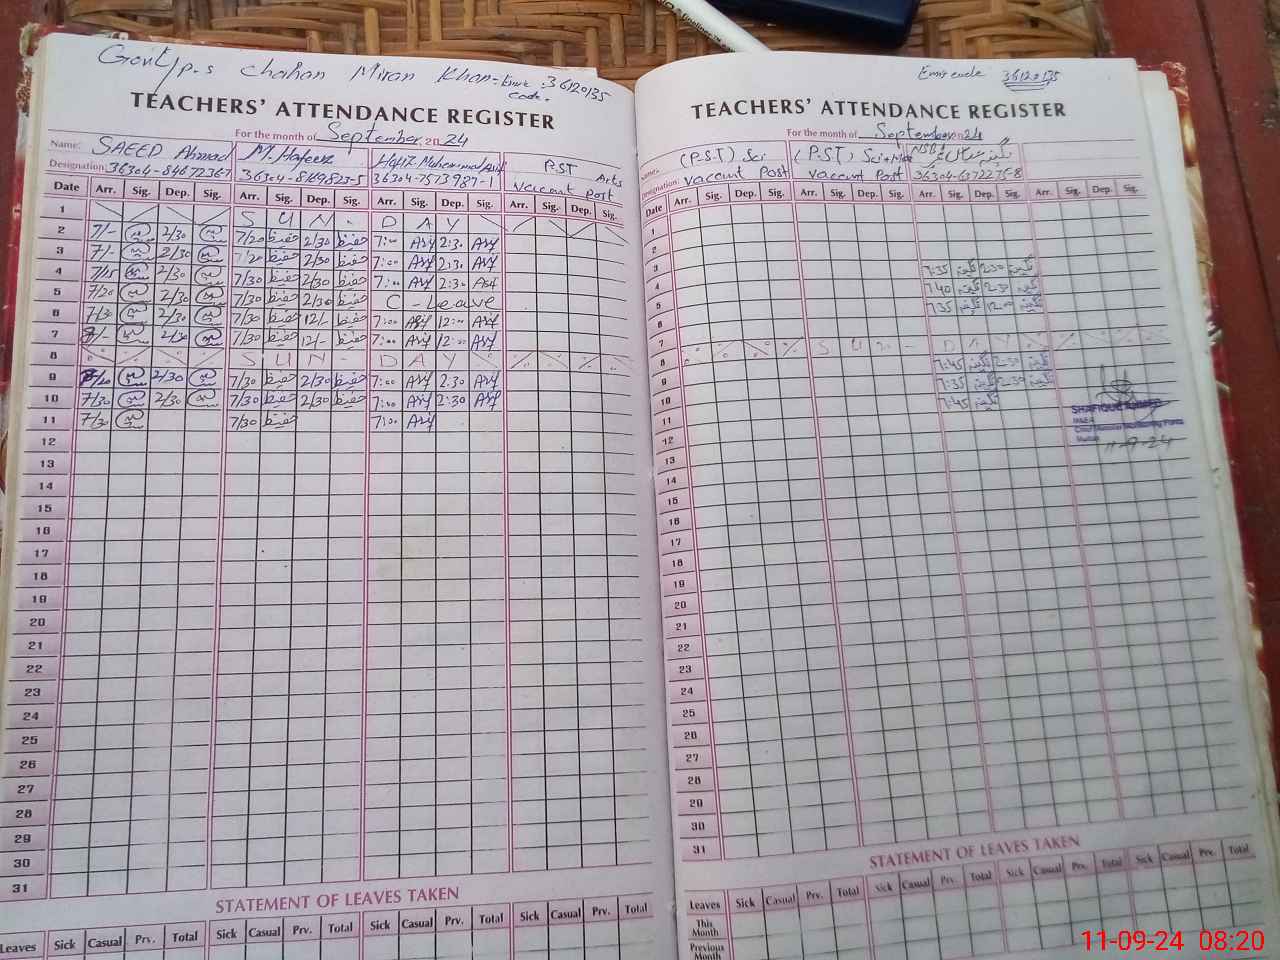 Govt p.s Chahan Miran Khan - Emis code. : 36120135
TEACHERS' ATTENDANCE REGISTER
For the month of September 2024
Name: SAEED Ahmad M. Hafeez Muhammad Asif P.ST Arts
Designation: 36304-8169823-5 36304-7573987-1 Vacant Post
Date Arr. Sig. Dep. Sig. Arr. Sig. Dep. Sig. Arr. Sig. Dep. Sig. Arr. Sig. Dep. Sig.
1 S U N - D A Y
2 7/- 2/30 7/20 حفیظ 2/30 حفیظ 7:00 Asif 2:30 Asif
3 7/- 2/30 7/20 حفیظ 2/30 حفیظ 7:00 Asif 2:30 Asif
4 7/15 2/30 7/30 حفیظ 2/30 حفیظ 7:00 Asif 2:30 Asif
5 7/20 2/30 7/30 حفیظ 2/30 حفیظ C - Leave
6 7/30 2/30 7/30 حفیظ 12/- حفیظ 7:00 Asif 12:00 Asif
7 2/30 7/30 حفیظ 12/- حفیظ 7:00 Asif 12:00 Asif
8 S U N - D A Y
9 7/20 2/30 7/30 حفیظ 2/30 حفیظ 7:00 Asif 2:30 Asif
10 7/30 2/30 7/30 حفیظ 2/30 حفیظ 7:00 Asif 2:30 Asif
11 7/30 7/30 حفیظ 7:00 Asif
12
13
14
15
16
17
18
19
20
21
22
23
24
25
26
27
28
29
30
31
STATEMENT OF LEAVES TAKEN
Leaves Sick Casual Prv. Total Sick Casual Prv. Total Sick Casual Prv. Total Sick Casual Prv. Total
Emis code 36120135
TEACHERS' ATTENDANCE REGISTER
For the month of September 2024
Name: (P.S.T) Sci (P.S.T) Sci NSB
Designation: Vacant Post Vacant Post 36304-6372275-8
Date Arr. Sig. Dep. Sig. Arr. Sig. Dep. Sig. Arr. Sig. Dep. Sig. Arr. Sig. Dep. Sig.
1
2
3
4 7:35 نگینہ 2:30 نگینہ
5 7:40 نگینہ 2:30 نگینہ
6 7:35 نگینہ 12:00 نگینہ
7
8 S U N - D A Y
9 7:45 نگینہ 2:30 نگینہ
10 7:35 نگینہ 2:30 نگینہ
11 7:45 نگینہ
SHAFIQUE AHMED
MEA
Chief Minister Monitoring Force
Multan
11-9-24
12
13
14
15
16
17
18
19
20
21
22
23
24
25
26
27
28
29
30
31
STATEMENT OF LEAVES TAKEN
Leaves Sick Casual Prv. Total Sick Casual Prv. Total Sick Casual Prv. Total Sick Casual Prv. Total
This Month
Previous Month
11-09-24 08:20